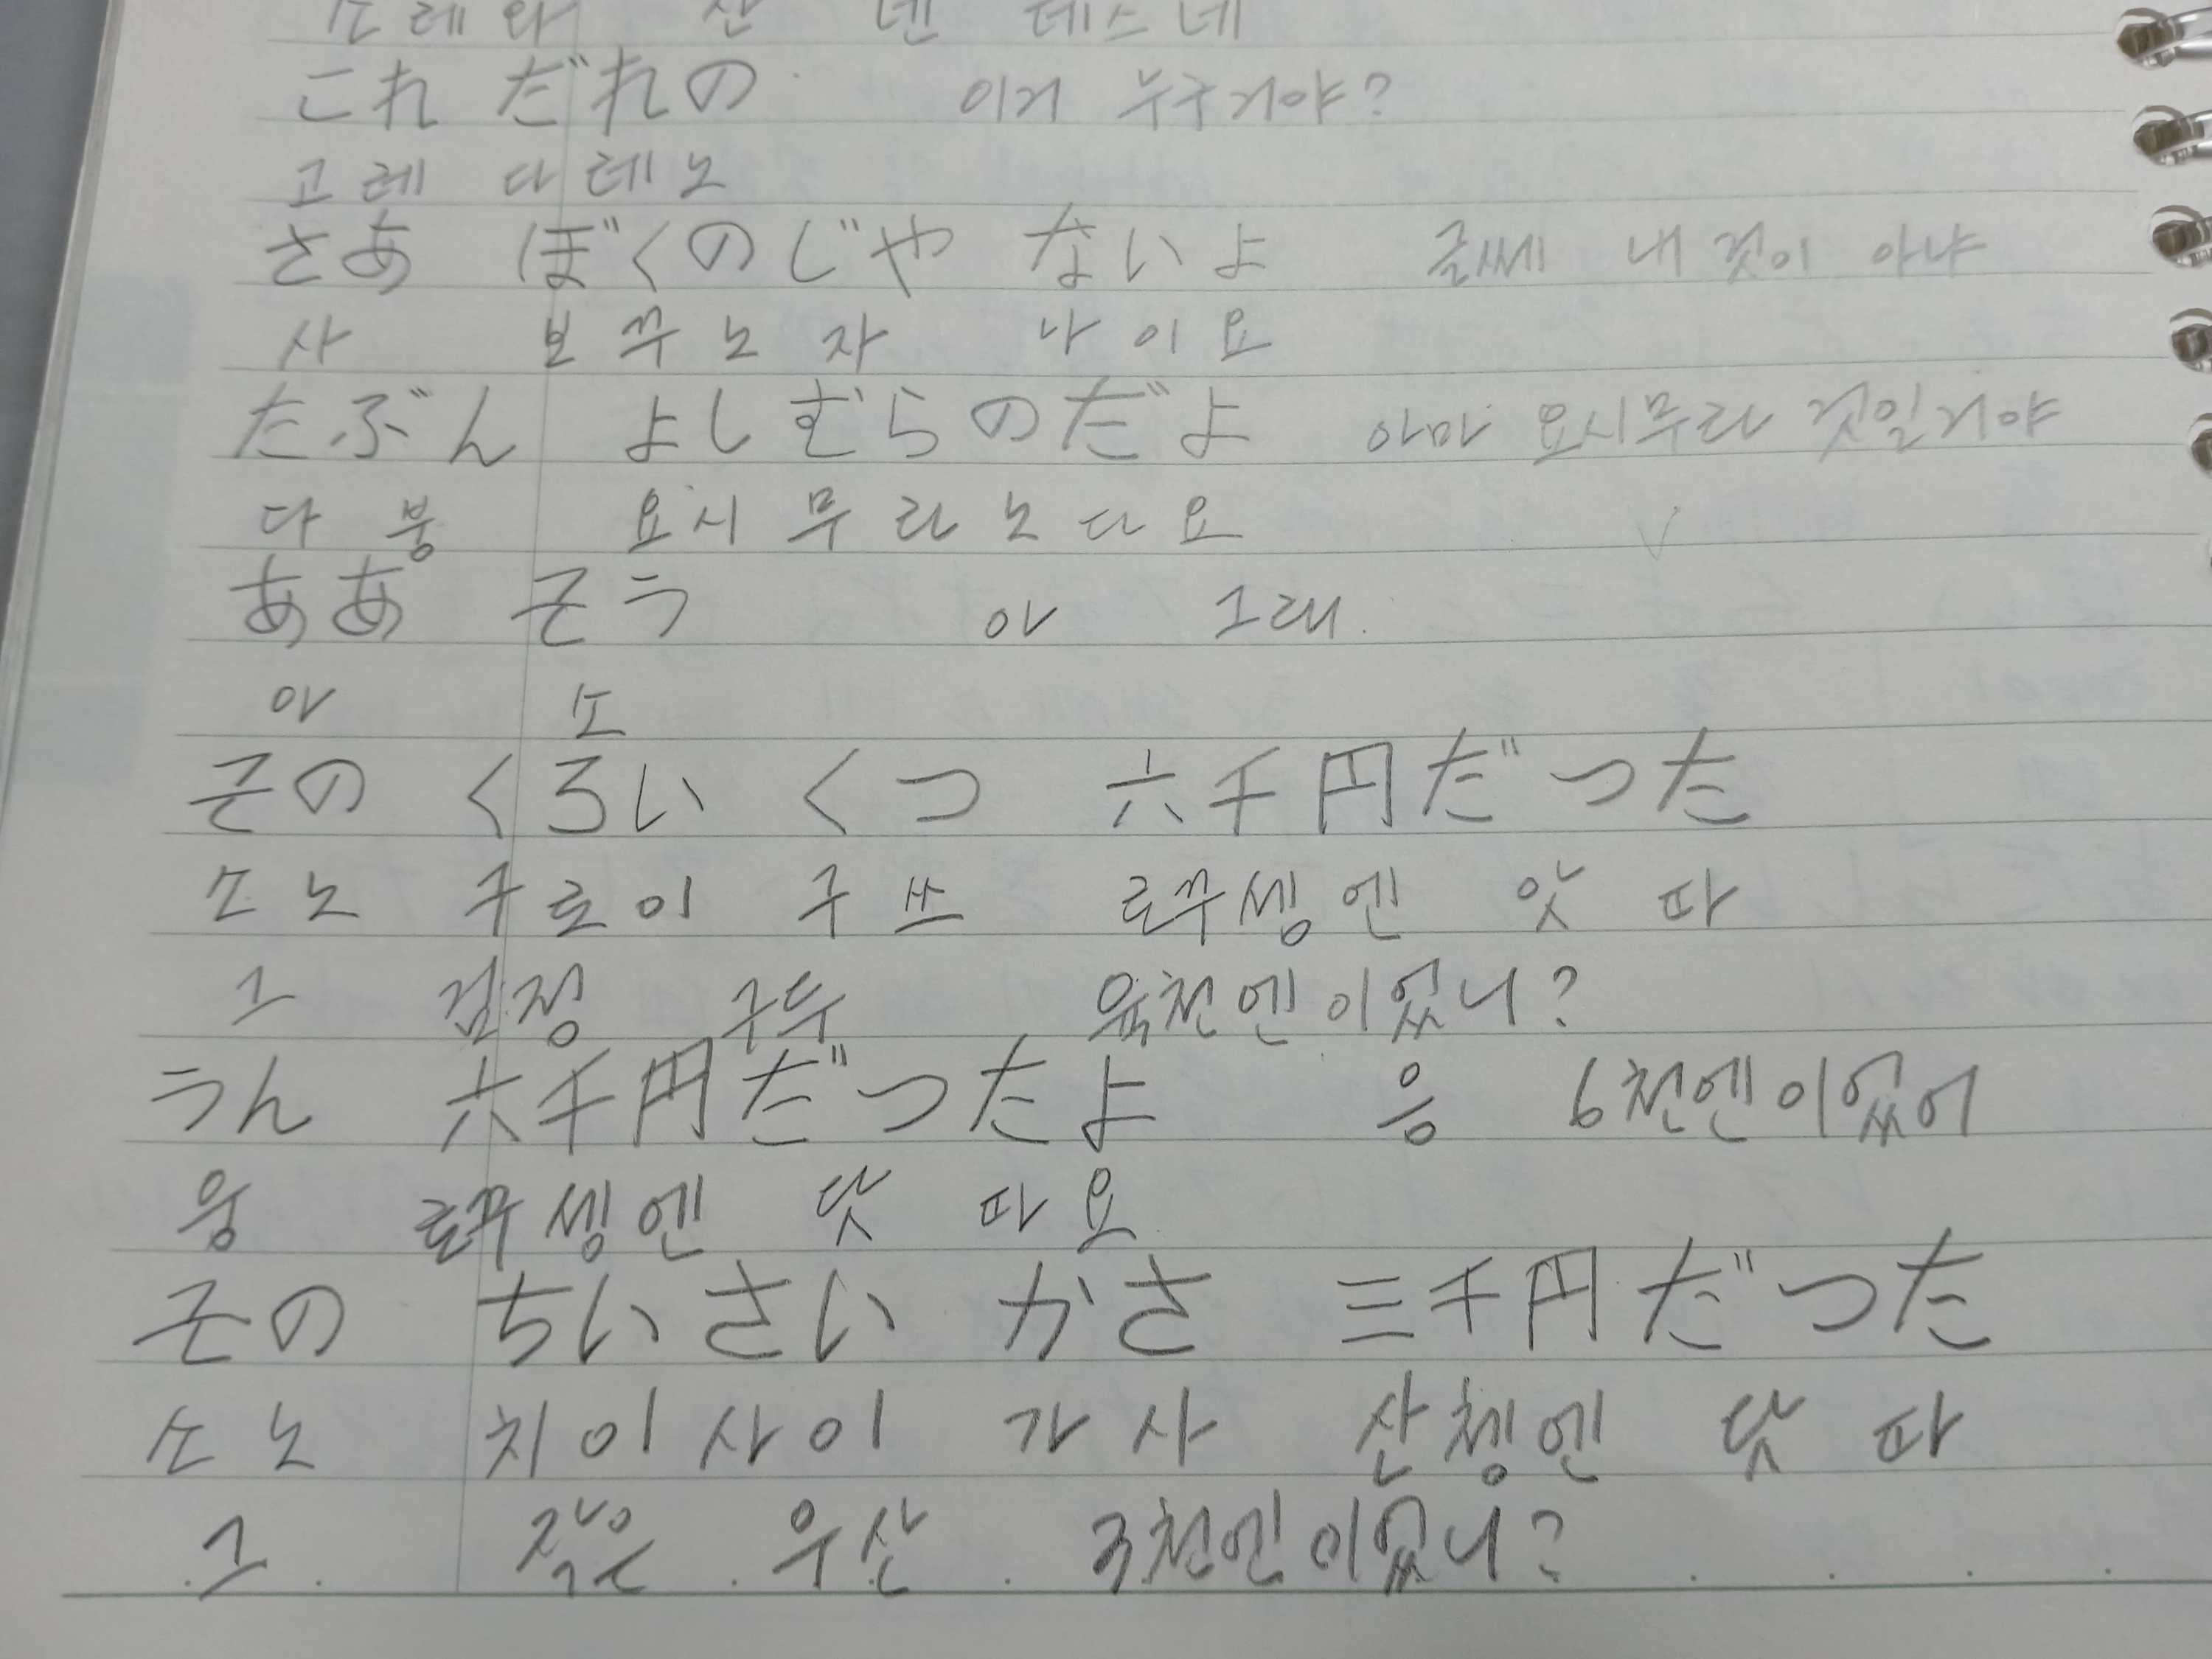 소레와 산 넨 데스네
これ だれの 이거 누구거야?
고레 다레노
さあ ぼくのじや ないよ 글쎄 내것이 아냐
사 보꾸노자 나이요
たぶん よしむらのだよ 아마 요시무라 것일거야
다붕 요시무라노다요
ああ そう 아 그래.
아 소
その くろい くつ 六千円だつた
소노 구로이 구쯔 로꾸셍엔 앗따
그 검정 구두 육천엔이었니?
うん 六千円だつたよ 응 6천엔이었어
웅 로꾸셍엔 닷따요
その ちいさい かさ 三千円だつた
소노 치이사이 가사 산쳉엔 닷따
그 작은 우산 3천엔이었니?